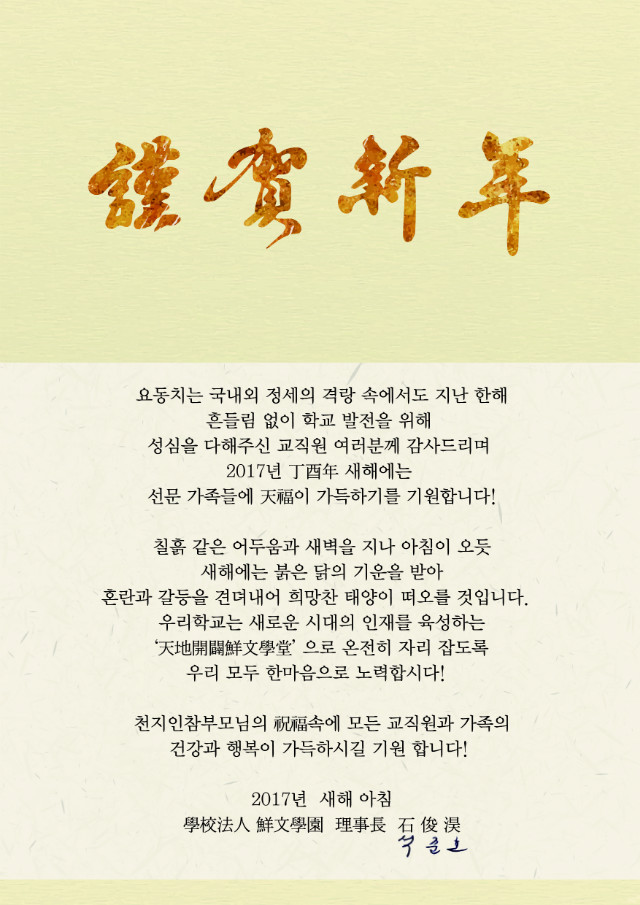 謹賀新年
요동치는 국내외 정세의 격랑 속에서도 지난 한해
흔들림 없이 학교 발전을 위해
성심을 다해주신 교직원 여러분께 감사드리며
2017년 丁酉年 새해에는
선문 가족들에 天福이 가득하기를 기원합니다!
칠흙 같은 어두움과 새벽을 지나 아침이 오듯
새해에는 붉은 닭의 기운을 받아
혼란과 갈등을 견뎌내어 희망찬 태양이 떠오를 것입니다.
우리학교는 새로운 시대의 인재를 육성하는
‘天地開闢鮮文學堂’ 으로 온전히 자리 잡도록
우리 모두 한마음으로 노력합시다!
천지인참부모님의 祝福속에 모든 교직원과 가족의
건강과 행복이 가득하시길 기원 합니다!
2017년 새해 아침
學校法人 鮮文學園 理事長 石 俊 淏
석 준 호